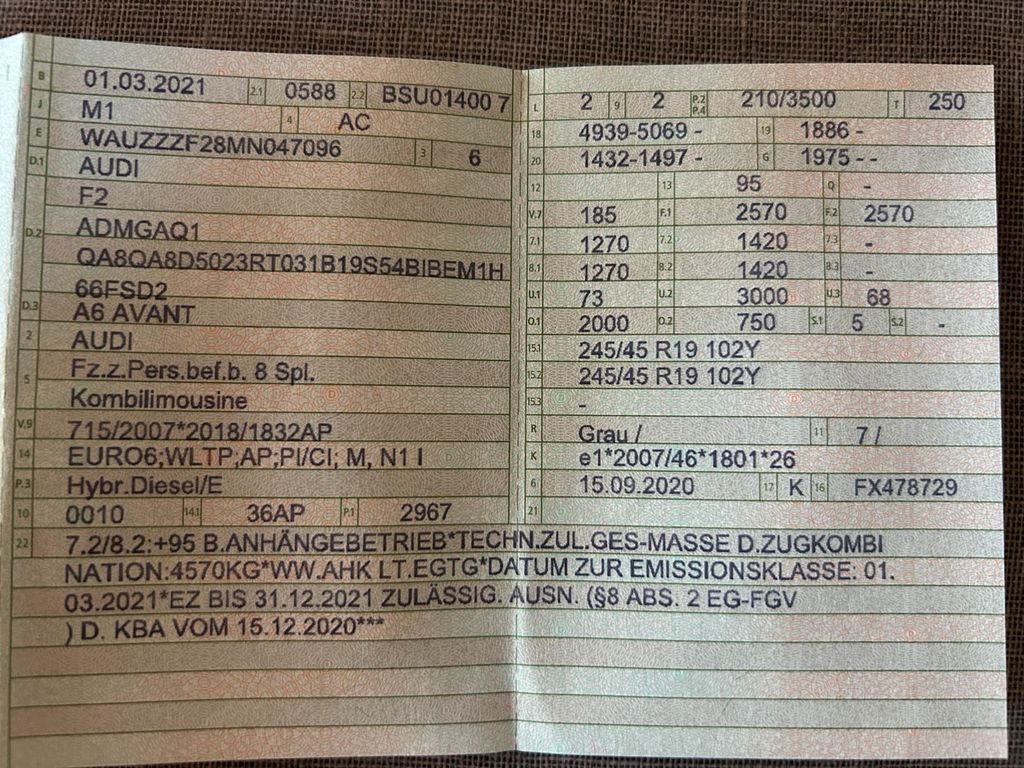 B 01.03.2021 2.1 0588 2.2 BSU01400 7
J M1 4 AC
E WAUZZZF28MN047096 3 6
D.1 AUDI
F2
D.2 ADMGAQ1
QA8QA8D5023RT031B19S54BIBEM1H
66FSD2
D.3 A6 AVANT
2 AUDI
5 Fz.z.Pers.bef.b. 8 Spl.
Kombilimousine
V.9 715/2007*2018/1832AP
14 EURO6;WLTP;AP;PI/CI; M, N1 I
P.3 Hybr.Diesel/E
10 0010 14.1 36AP P.1 2967
L 2 9 2 P.2 P.4 210/3500 T 250
18 4939-5069 - 19 1886 -
20 1432-1497 - G 1975 - -
12 13 95 Q -
V.7 185 F.1 2570 F.2 2570
7.1 1270 7.2 1420 7.3 -
8.1 1270 8.2 1420 8.3 -
U.1 73 U.2 3000 U.3 68
O.1 2000 O.2 750 S.1 5 S.2 -
15.1 245/45 R19 102Y
15.2 245/45 R19 102Y
15.3 -
R Grau / 11 7 /
K e1*2007/46*1801*26
6 15.09.2020 17 K 16 FX478729
21
22 7.2/8.2:+95 B.ANHÄNGEBETRIEB*TECHN.ZUL.GES-MASSE D.ZUGKOMBI
NATION:4570KG*WW.AHK LT.EGTG*DATUM ZUR EMISSIONSKLASSE: 01.
03.2021*EZ BIS 31.12.2021 ZULÄSSIG. AUSN. (§8 ABS. 2 EG-FGV
) D. KBA VOM 15.12.2020***